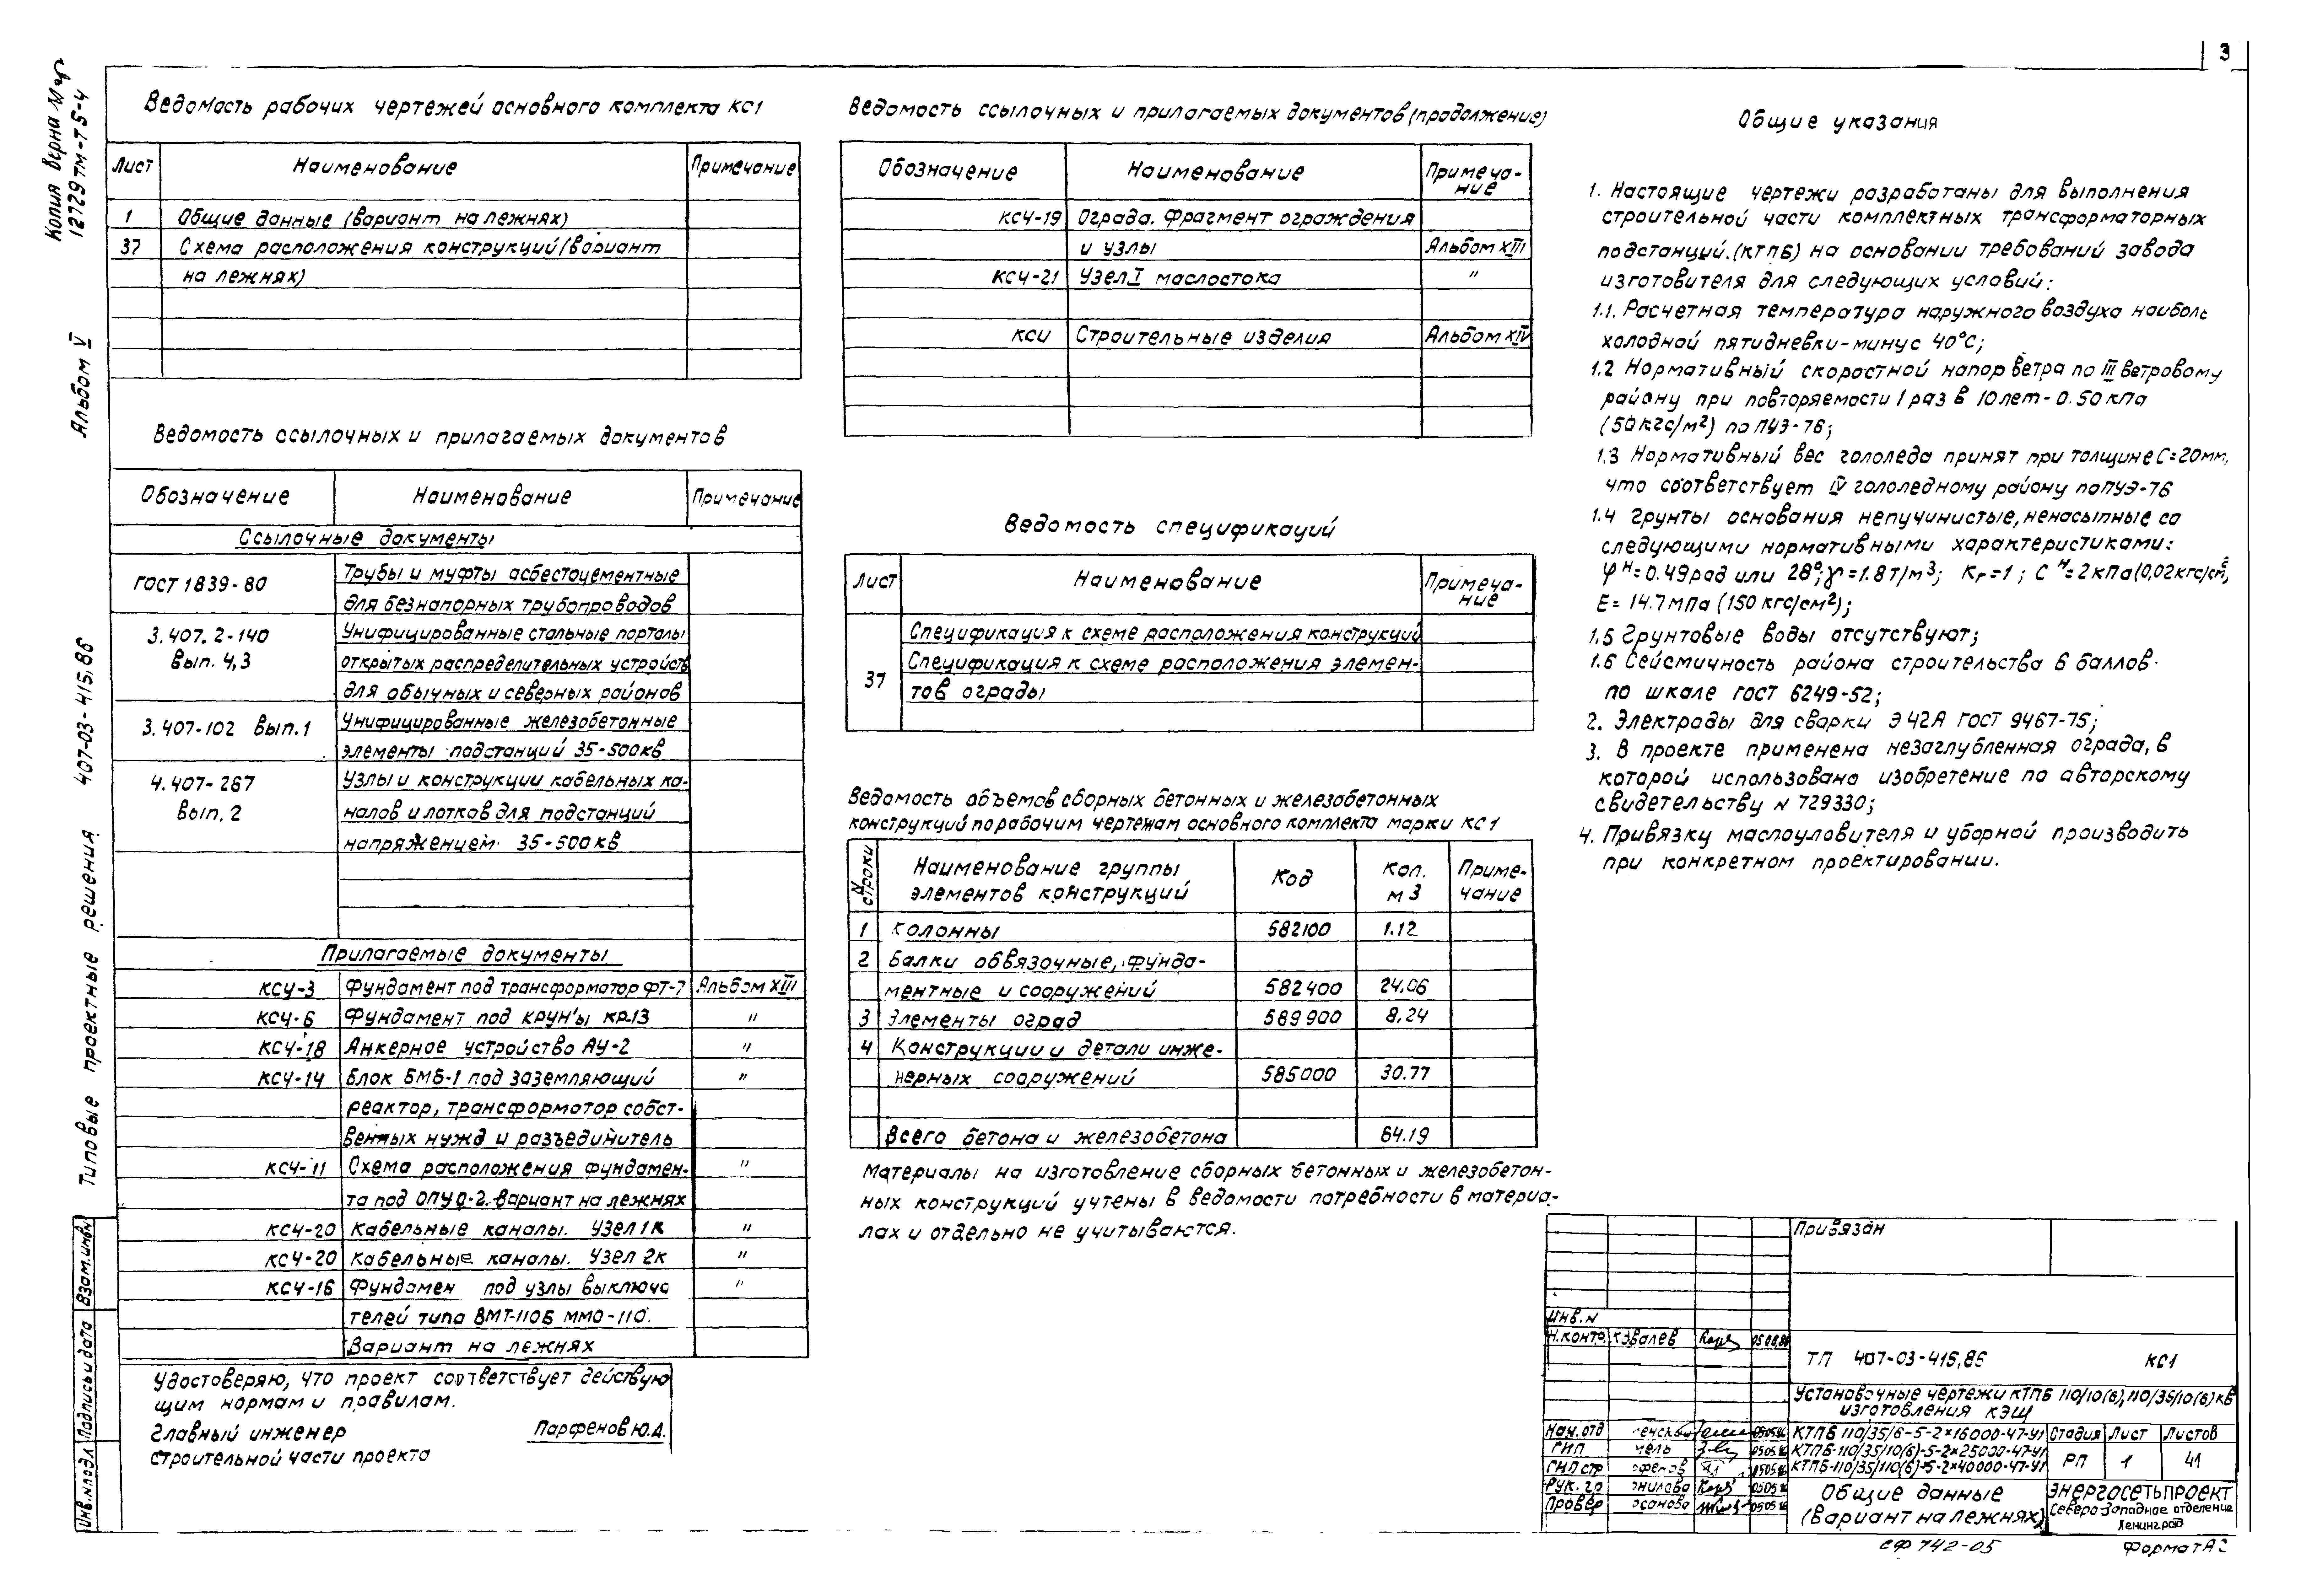 3
Копия верна
12729ТМ-Т5-4
Альбом V
Типовые проектные решения 407-03-415.86
Взам.инв.N
Подпись и дата
Инв.N подл
Ведомость рабочих чертежей основного комплекта КС1
Лист Наименование Примечание
1 Общие данные (вариант на лежнях)
37 Схема расположения конструкций (вариант
на лежнях)
Ведомость ссылочных и прилагаемых документов
Обозначение Наименование Примечание
Ссылочные документы
ГОСТ 1839-80 Трубы и муфты асбестоцементные
для безнапорных трубопроводов
3.407.2-140 Унифицированные стальные порталы
вып. 4,3 открытых распределительных устройств
для обычных и северных районов
3.407-102 вып.1 Унифицированные железобетонные
элементы подстанций 35-500кв
4.407-267 Узлы и конструкции кабельных ка-
вып. 2 налов и лотков для подстанций
напряжением 35-500кв
Прилагаемые документы
КСЧ-3 Фундамент под трансформатор ФТ-7 Альбом XIII
КСЧ-6 Фундамент под КРУН'ы КР13 "
КСЧ-18 Анкерное устройство АУ-2 "
КСЧ-14 Блок БМБ-1 под заземляющий "
реактор, трансформатор собст-
венных нужд и разъединитель
КСЧ-11 Схема расположения фундамен- "
та под ОПУ 0-2. вариант на лежнях
КСЧ-20 Кабельные каналы. Узел 1к "
КСЧ-20 Кабельные каналы. Узел 2к "
КСЧ-16 Фундамен под узлы выключа "
телей типа ВМТ-110Б ММО-110.
Вариант на лежнях
Удостоверяю, что проект соответствует действую
щим нормам и правилам.
Главный инженер Парфенов Ю.А.
строительной части проекта
Ведомость ссылочных и прилагаемых документов (продолжение)
Обозначение Наименование Примеча-
ние
КСЧ-19 Ограда. Фрагмент ограждения
и узлы Альбом XIII
КСЧ-21 Узел I маслостока "
КСИ Строительные изделия Альбом XIV
Ведомость спецификаций
Лист Наименование Примеча-
ние
Спецификация к схеме расположения конструкций
Спецификация к схеме расположения элемен-
37 тов ограды
Ведомость объемов сборных бетонных и железобетонных
конструкций по рабочим чертежам основного комплекта марки КС1
N строки Наименование группы Код Кол. Приме-
элементов конструкций м3 чание
1 Колонны 582100 1.12
2 Балки обвязочные, фунда-
ментные и сооружений 582400 24.06
3 Элементы оград 589900 8.24
4 Конструкции и детали инже-
нерных сооружений 585000 30.77
Всего бетона и железобетона 64.19
Материалы на изготовление сборных бетонных и железобетон-
ных конструкций учтены в ведомости потребности в материа-
лах и отдельно не учитываются.
Общие указания
1. Настоящие чертежи разработаны для выполнения
строительной части комплектных трансформаторных
подстанций.(КТПБ) на основании требований завода
изготовителя для следующих условий:
1.1. Расчетная температура наружного воздуха наиболь
холодной пятидневки-минус 40°С;
1.2 Нормативный скоростной напор ветра по III ветровому
району при повторяемости 1 раз в 10 лет - 0.50 кПа
(50 кгс/м²) по ПУЭ-76;
1.3 Нормативный вес гололеда принят при толщине С=20мм,
что соответствует IV гололедному району по ПУЭ-76
1.4 Грунты основания непучинистые, ненасыпные со
следующими нормативными характеристиками:
φн=0.49рад или 28°; γ=1.8т/м³; Кг=1; Сн=2кПа(0,02кгс/см²,
Е= 14.7мПа (150 кгс/см²);
1.5 Грунтовые воды отсутствуют;
1.6 Сейсмичность района строительства 6 баллов
по шкале ГОСТ 6249-52;
2. Электрады для сварки Э42А ГОСТ 9467-75;
3. В проекте применена незаглубленная ограда, в
которой использовано изобретение по авторскому
свидетельству N 729330;
4. Привязку маслоуловителя и уборной производить
при конкретном проектировании.
Привязан
Инв. N
Н.контр. Ковалев 05.08.86
ТП 407-03-415,86 КС1
Установочные чертежи КТПБ 110/10(6),110/35/10(6)кв
изготовления КЭЩ
Нач.отд 05.05.86
ГИП 05.05.86
ГИП стр 05.05.86
Рук.гр 05.05.86
Провер 05.05.86
КТПБ 110/35/6-5-2×16000-47-У1
КТПБ-110/35/10(6)-5-2×25000-47-У1
КТПБ-110/35/110(6)-5-2×40000-47-У1
Стадия Лист Листов
РП 1 41
Общие данные
(вариант на лежнях)
Энергосетьпроект
Северо-Западное отделение
Ленинград
СФ 742-05
Формат А2